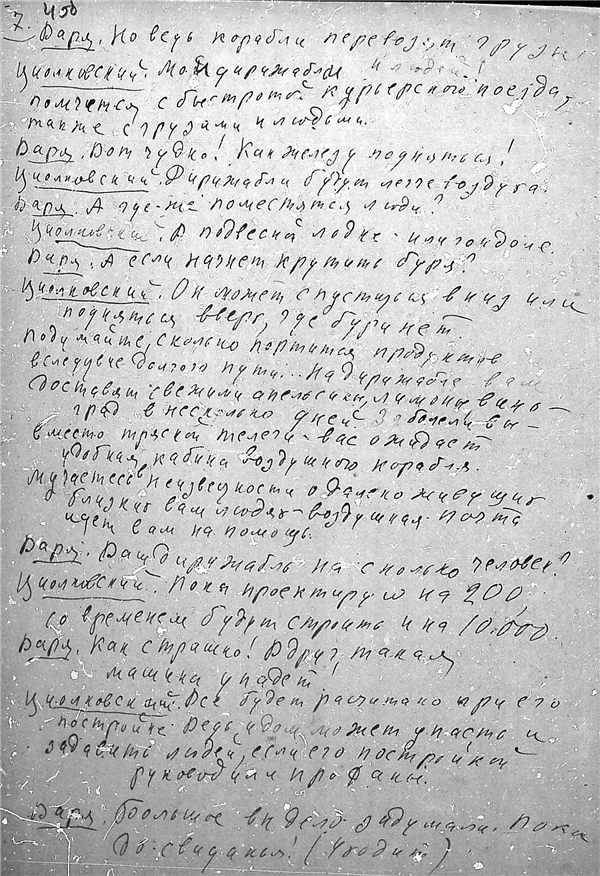 7. 
Варя. Но ведь корабли перевозят грузы
и людей!
Циолковский. Мой дирижабль
помчется с быстротой курьерского поезда,
также с грузами и людьми.
Варя. Вот чудно! Как железу подняться!
Циолковский. Дирижабли будут легче воздуха.
Варя. А где-же поместятся люди?
Циолковский. В подвесной лодке - или гондоле.
Варя. А если начнет крутить буря?
Циолковский. Он может спуститься вниз или
подняться вверх, где бури нет
Подумайте, сколько портится продуктов
вследствие долгого пути... На дирижабле вам
доставят свежими апельсины, лимоны, вино-
град в несколько дней. Заболели вы -
вместо тряской телеги - вас ожидает
удобная кабина воздушного корабля.
Мучаетесь в неизвестности о далеко живущих
близких вам людях - воздушная почта
идет вам на помощь.
Варя. Ваш дирижабль на сколько человек?
Циолковский. Пока проектирую на 200,
со временем будут строить и на 10.000.
Варя. Как страшно! Вдруг такая
машина упадет!
Циолковский. Все будет расчитано при его
постройке. Ведь и дом может упасть и
задавить людей, если его постройкой
руководили профаны.
Варя. Большое вы дело задумали. Пока
До-свиданья! (Уходит)